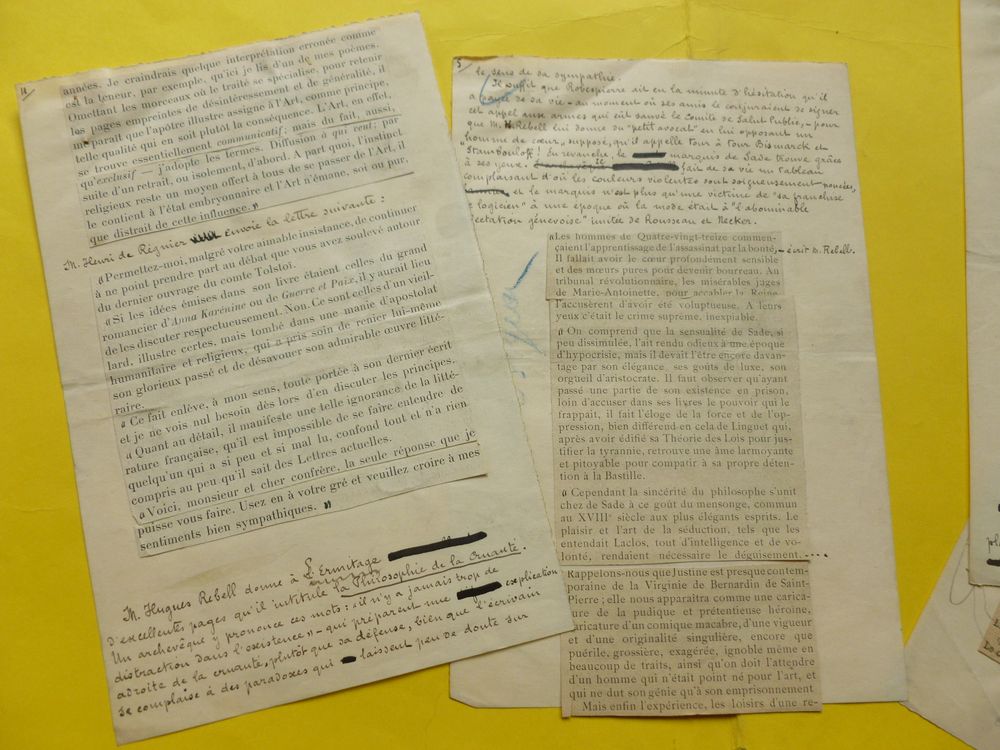 4
années. Je craindrais quelque interprétation erronée comme
est la teneur, par exemple, qu'ici je lis d'un de mes poèmes.
Omettant les morceaux où le traité se spécialise, pour retenir
les pages empreintes de désintéressement et de généralité, il
me paraît que l'apôtre illustre assigne à l'Art, comme principe,
telle qualité qui en soit plutôt la conséquence. L'Art, en effet,
se trouve essentiellement communicatif; mais du fait, aussi,
qu'exclusif — j'adopte les termes. Diffusion à qui veut; par
suite d'un retrait, ou isolement, d'abord. A part quoi, l'instinct
religieux reste un moyen offert à tous de se passer de l'Art, il
le contient à l'état embryonnaire et l'Art n'émane, soi ou pur,
que distrait de cette influence. »
M. Henri de Régnier envoie la lettre suivante :
« Permettez-moi, malgré votre aimable insistance, de continuer
à ne point prendre part au débat que vous avez soulevé autour
du dernier ouvrage du comte Tolstoï.
« Si les idées émises dans son livre étaient celles du grand
romancier d'Anna Karénine ou de Guerre et Paix, il y aurait lieu
de les discuter respectueusement. Non. Ce sont celles d'un vieil-
lard, illustre certes, mais tombé dans une manie d'apostolat
humanitaire et religieux, qui a pris soin de renier lui-même
son glorieux passé et de désavouer son admirable œuvre litté-
raire.
« Ce fait enlève, à mon sens, toute portée à son dernier écrit
et je ne vois nul besoin dès lors d'en discuter les principes.
« Quant au détail, il manifeste une telle ignorance de la litté-
rature française, qu'il est impossible de se faire entendre de
quelqu'un qui a si peu et si mal lu, confond tout et n'a rien
compris au peu qu'il sait des Lettres actuelles.
« Voici, monsieur et cher confrère, la seule réponse que je
puisse vous faire. Usez en à votre gré et veuillez croire à mes
sentiments bien sympathiques. »
M. Hugues Rebell donne à L'Ermitage
d'excellentes pages qu'il intitule la Philosophie de la Cruauté.
Un archevêque y prononce ces mots : « il n'y a jamais trop de
distraction dans l'existence » – qui préparent une explication
adroite de la cruauté, plutôt que sa défense, bien que l'écrivain
se complaise à des paradoxes qui laissent peu de doute sur
5
le sens de sa sympathie.
Il suffit que Robespierre ait en la minute d'hésitation qu'il
a payée de sa vie – au moment où ses amis le conjuraient de signer
cet appel aux armes qui eût sauvé le Comité de Salut Public, – pour
que M. Rebell lui donne du "petit avocat" en lui opposant un
"homme de cœur", supposé, qu'il appelle tour à tour Bismarck et
"Stambouloff! En revanche, le marquis de Sade trouve grâce
à ses yeux. fait de sa vie un tableau
complaisant d'où les couleurs violentes sont soigneusement
et le marquis n'est plus qu'une victime de "sa franchise
de logicien" à une époque où la mode était à "l'abominable
affectation génevoise" imitée de Rousseau et Necker.
« Les hommes de Quatre-vingt-treize commen-
çaient l'apprentissage de l'assassinat par la bonté, – écrit M. Rebell.
Il fallait avoir le cœur profondément sensible
et des mœurs pures pour devenir bourreau. Au
tribunal révolutionnaire, les misérables juges
de Marie-Antoinette, pour accabler la Reine
l'accusèrent d'avoir été voluptueuse. A leurs
yeux c'était le crime suprême, inexpiable.
« On comprend que la sensualité de Sade, si
peu dissimulée, l'ait rendu odieux à une époque
d'hypocrisie, mais il devait l'être encore davan-
tage par son élégance, ses goûts de luxe, son
orgueil d'aristocrate. Il faut observer qu'ayant
passé une partie de son existence en prison,
loin d'accuser dans ses livres le pouvoir qui le
frappait, il fait l'éloge de la force et de l'op-
pression, bien différend en cela de Linguet qui,
après avoir édifié sa Théorie des Lois pour jus-
tifier la tyrannie, retrouve une âme larmoyante
et pitoyable pour compatir à sa propre déten-
tion à la Bastille.
« Cependant la sincérité du philosophe s'unit
chez de Sade à ce goût du mensonge, commun
au XVIIIe siècle aux plus élégants esprits. Le
plaisir et l'art de la séduction, tels que les
entendait Laclos, tout d'intelligence et de vo-
lonté, rendaient nécessaire le déguisement.....
Rappelons-nous que Justine est presque contem-
poraine de la Virginie de Bernardin de Saint-
Pierre; elle nous apparaîtra comme une carica-
ture de la pudique et prétentieuse héroïne,
caricature d'un comique macabre, d'une vigueur
et d'une originalité singulière, encore que
puérile, grossière, exagérée, ignoble même en
beaucoup de traits, ainsi qu'on doit l'attendre
d'un homme qui n'était point né pour l'art, et
qui ne dut son génie qu'à son emprisonnement
Mais enfin l'expérience, les loisirs d'une re-